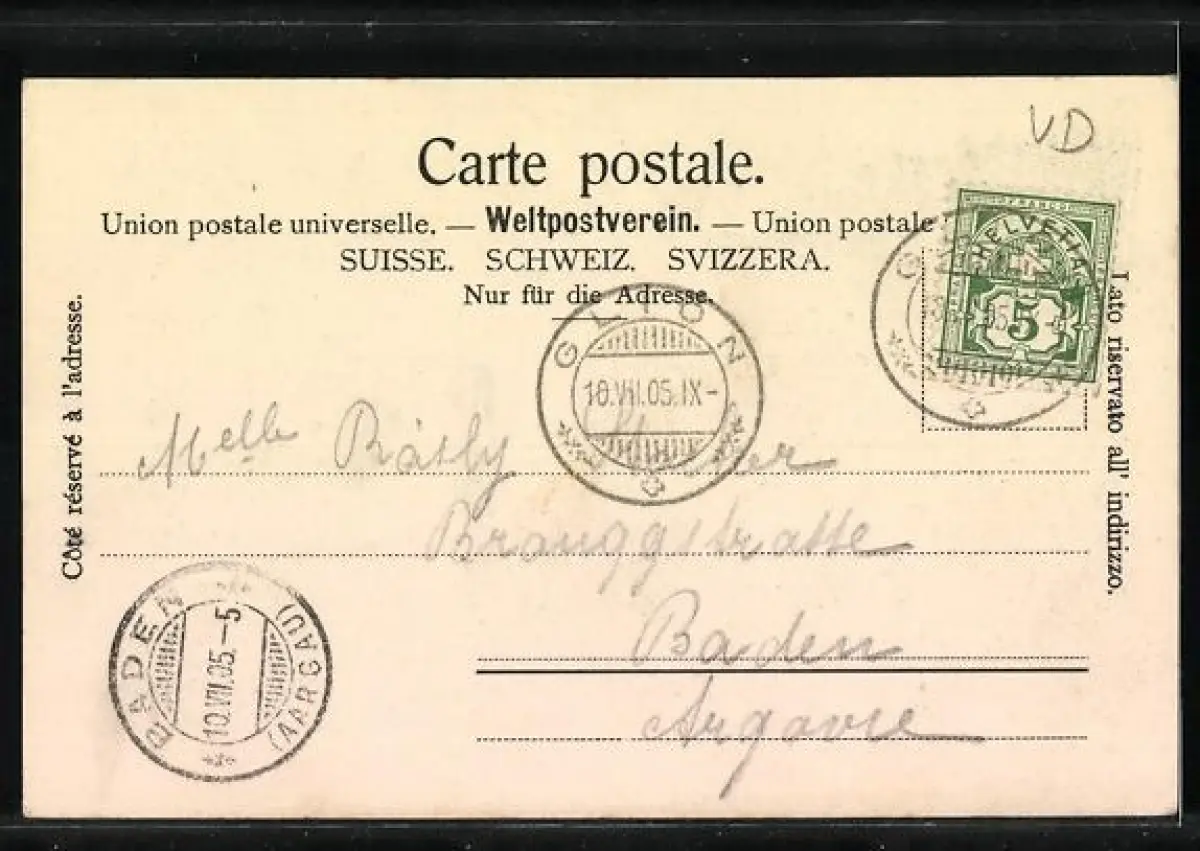 VD
Carte postale.
Union postale universelle. — Weltpostverein. — Union postale
SUISSE. SCHWEIZ. SVIZZERA.
Nur für die Adresse.
Côté réservé à l'adresse.
Lato riservato all' indirizzo.
FRANCO
HELVETIA
5
GLION
10.VII.05.IX-
Melle
Baden
Argovie
BADEN
10.VII.05.-5
(AARGAU)